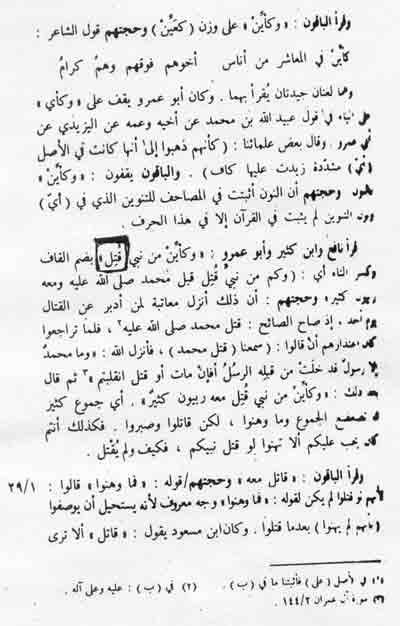 وقرأ الباقون : « وكأيّن » على وزن ( كعَيِّنْ ) وحجتهم قول الشاعر :
كأيّن في المعاشر من أناس أخوهم فوقهم وهمُ كرامُ
وهما لغتان جيدتان يُقرأ بهما . وكان أبو عمرو يقف على « وكأي »
على الياء في قول عبيد الله بن محمد عن أخيه وعمه عن اليزيدي عن
أبي عمرو . وقال بعض علمائنا : ( كأنهم ذهبوا إلى أنها كانت في الأصل
( أيّ ) مشدّدة زيدت عليها كاف ) . والباقون يقفون : « وكأيّن »
بالنون وحجتهم أن النون أثبتت في المصاحف للتنوين الذي في ( أيّ )
ونون التنوين لم يثبت في القرآن إلا في هذا الحرف .
قرأ نافع وابن كثير وأبو عمرو : « وكأيّن من نبي قُتِل » بضم القاف
وكسر التاء أي : ( وكم من نبيّ قُتِل قبل محمد صلى الله عليه ومعه
ربيون كثير » وحجتهم : أن ذلك أنزل معاتبة لمن أدبر عن القتال
يوم أحد ، إذ صاح الصائح : قتل محمد صلى الله عليه٢ ، فلما تراجعوا
كان اعتذارهم أنْ قالوا : ( سمعنا ( قتل محمد ) ، فأنزل الله : « وما محمدٌ
إلا رسولٌ قد خلَتْ من قبلِه الرسُلُ أفإنْ مات أو قتل انقلبتم »٣ ثم قال
بعد ذلك : « وكأيّن من نبي قُتِل معه ربيون كثيرٌ » . أي جموع كثير
فما تضعضع الجموع وما وهنوا ، لكن قاتلوا وصبروا . فكذلك أنتم
كان يجب عليكم ألا تهنوا لو قتل نبيكم ، فكيف ولم يُقْتل .
وقرأ الباقون : « قاتل معه » وحجتهم/قوله : « فما وهنوا » قالوا : ٢٩/١
لأنهم لو قتلوا لم يكن لقوله : « فما وهنوا » وجه معروف لأنه يستحيل أن يوصفوا
( بأنهم لم يهنوا ) بعدما قتلوا . وكان ابن مسعود يقول : « قاتل » ألا ترى
(١) في الأصل ( على ) فأثبتنا ما في ( ب ) . (٢) في ( ب ) : عليه وعلى آله .
(٣) سورة آل عمران ١٤٤/٣ .